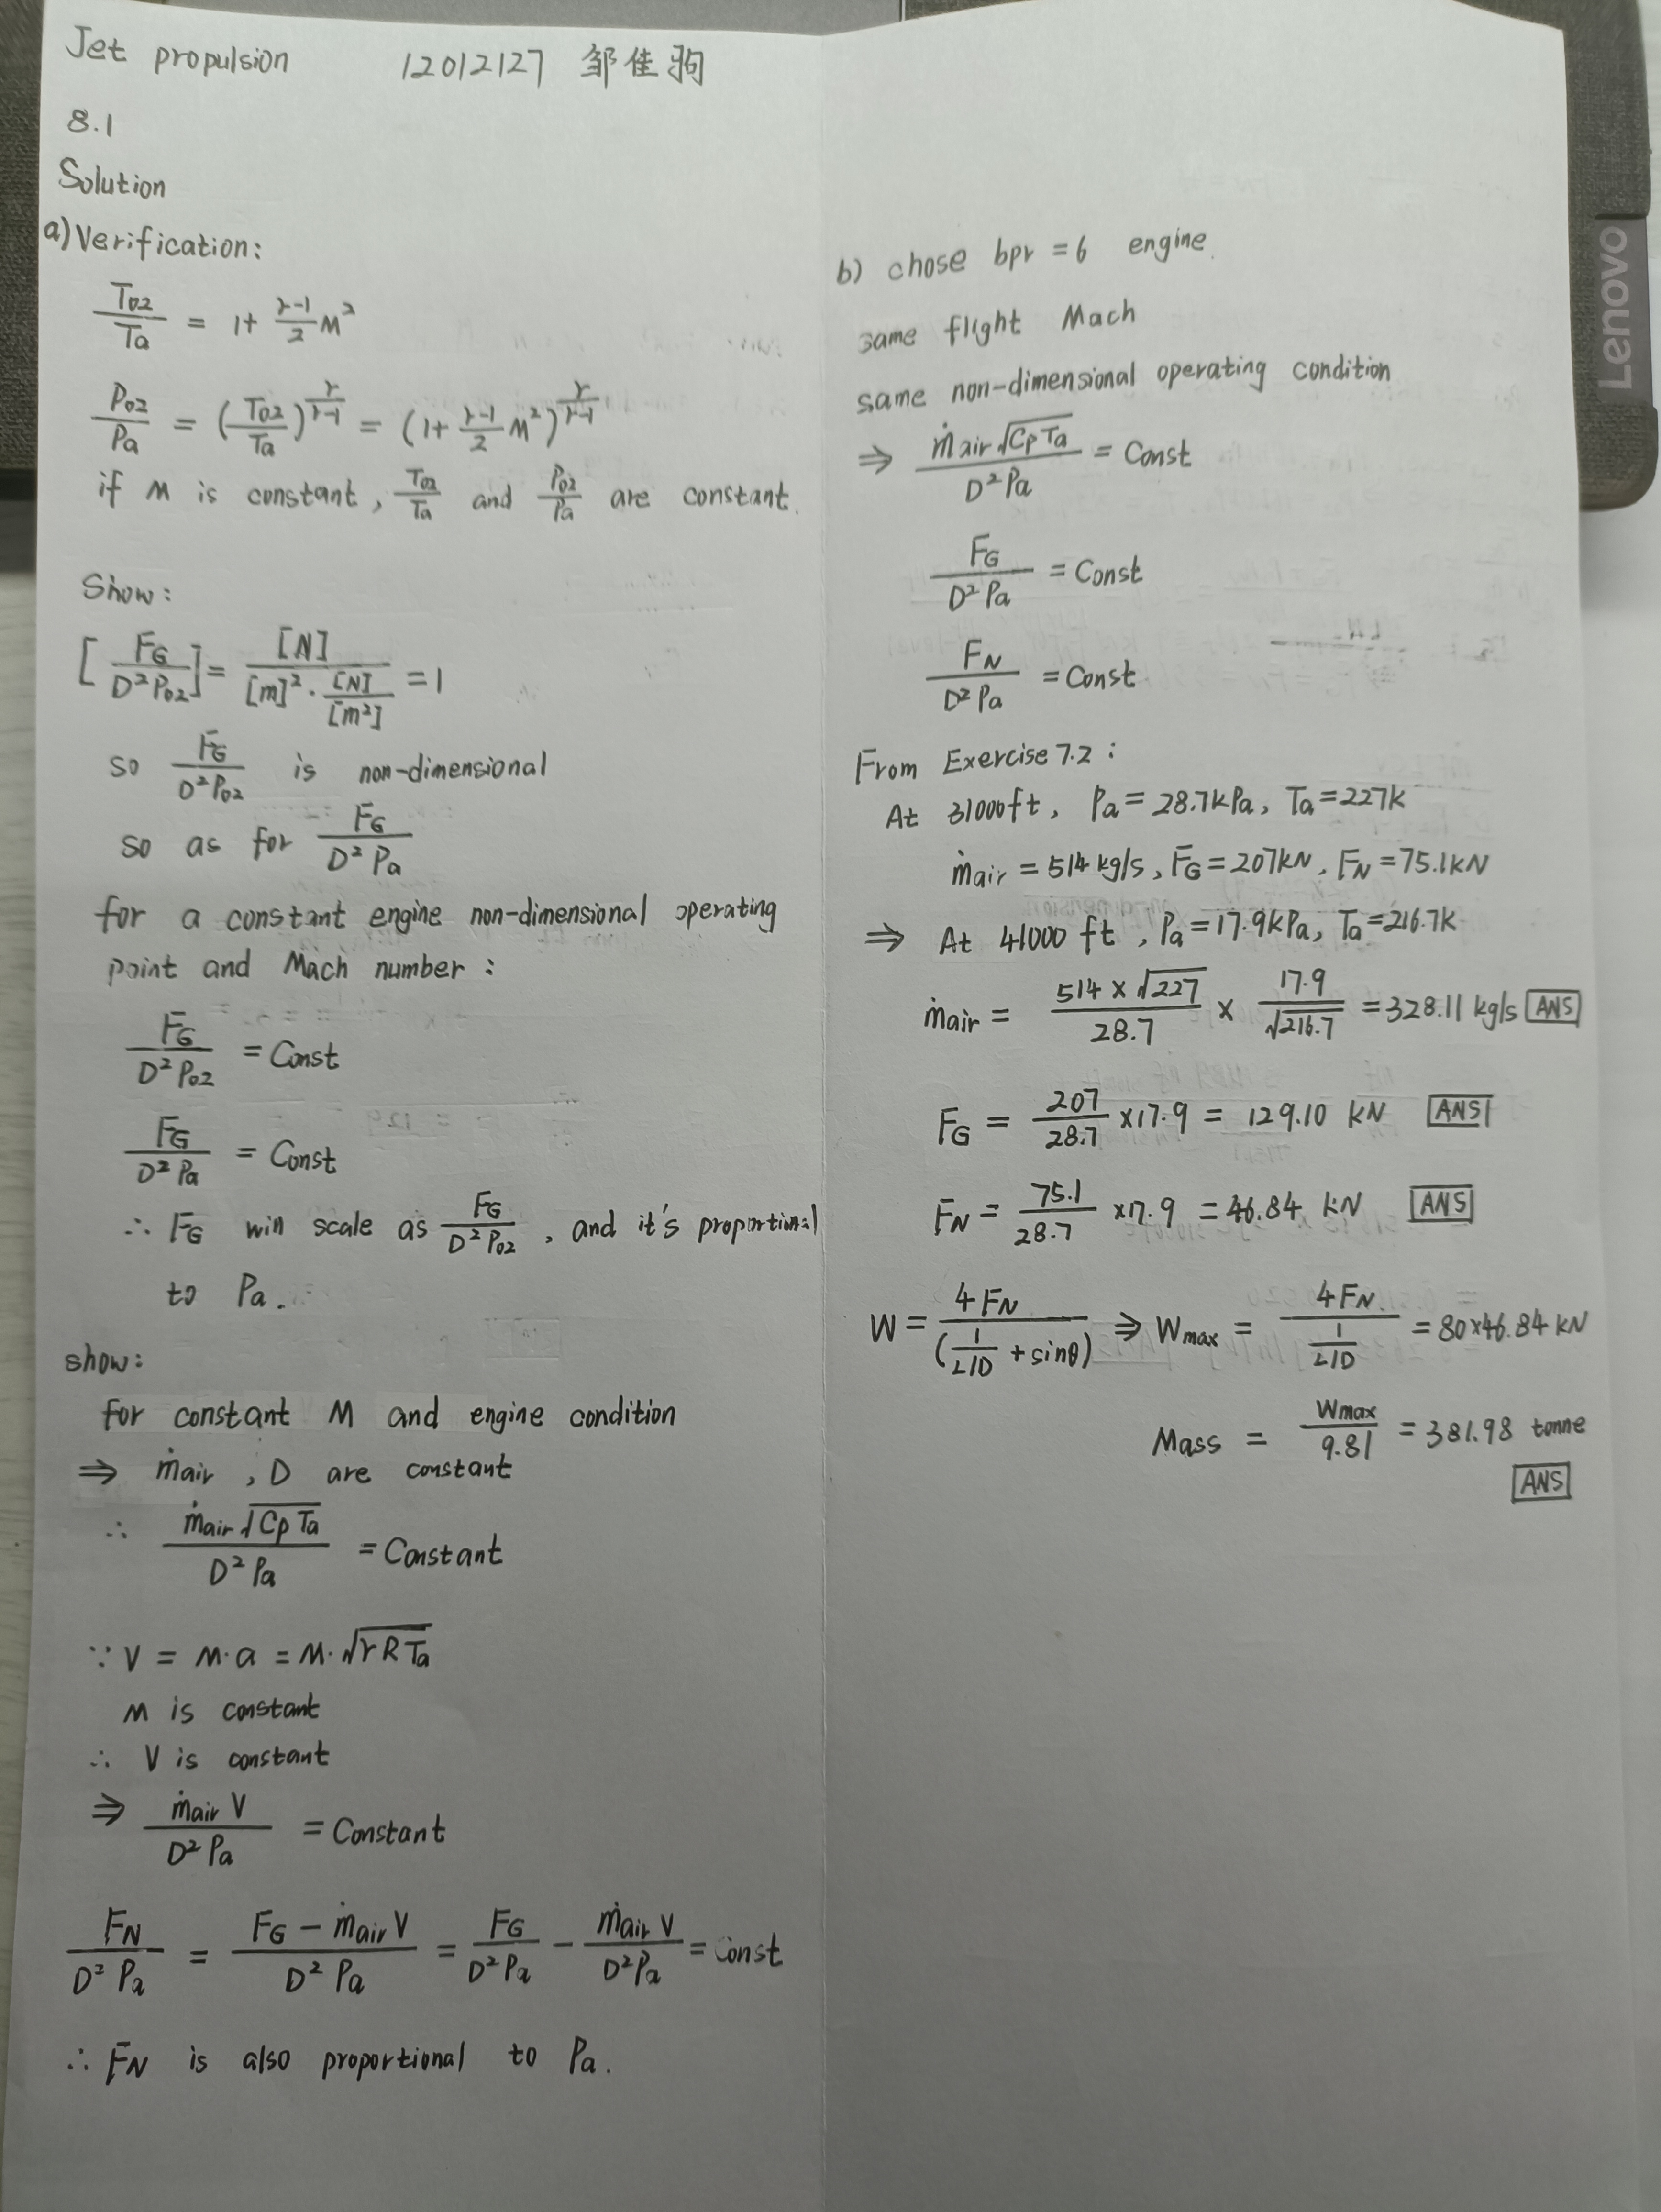 Jet propulsion 12012127 邹佳驹
8.1
Solution
a) Verification:
T02/Ta = 1+ (γ-1)/2 M²
P02/Pa = (T02/Ta)^(γ/(γ-1)) = (1+ (γ-1)/2 M²)^(γ/(γ-1))
if M is constant, T02/Ta and P02/Pa are constant.
Show:
[FG/(D²P02)] = [N]/([m]²·[N]/[m²]) = 1
so FG/(D²P02) is non-dimensional
so as for FG/(D² Pa)
for a constant engine non-dimensional operating
point and Mach number:
FG/(D² P02) = Const
FG/(D² Pa) = Const
∴ FG will scale as FG/(D² P02), and it's proportional
to Pa.
show:
for constant M and engine condition
⇒ ṁair, D are constant
∴ ṁair√(Cp Ta)/(D² Pa) = Constant
∵ V = M·a = M·√(γRTa)
M is constant
∴ V is constant
⇒ ṁair V/(D² Pa) = Constant
FN/(D² Pa) = (FG - ṁair V)/(D² Pa) = FG/(D² Pa) - ṁair V/(D² Pa) = Const
∴ FN is also proportional to Pa.
b) chose bpr = 6 engine.
same flight Mach
same non-dimensional operating condition
⇒ ṁair√(Cp Ta)/(D² Pa) = Const
FG/(D² Pa) = Const
FN/(D² Pa) = Const
From Exercise 7.2:
At 31000ft, Pa = 28.7kPa, Ta = 227K
ṁair = 514 kg/s, FG = 207kN, FN = 75.1kN
⇒ At 41000 ft, Pa = 17.9kPa, Ta = 216.7K
ṁair = (514 × √227)/28.7 × 17.9/√216.7 = 328.11 kg/s ANS
FG = 207/28.7 × 17.9 = 129.10 kN ANS
FN = 75.1/28.7 × 17.9 = 46.84 kN ANS
W = 4FN/(1/(L/D) + sinθ) ⇒ Wmax = 4FN/(1/(L/D)) = 80×46.84 kN
Mass = Wmax/9.81 = 381.98 tonne
ANS
Lenovo